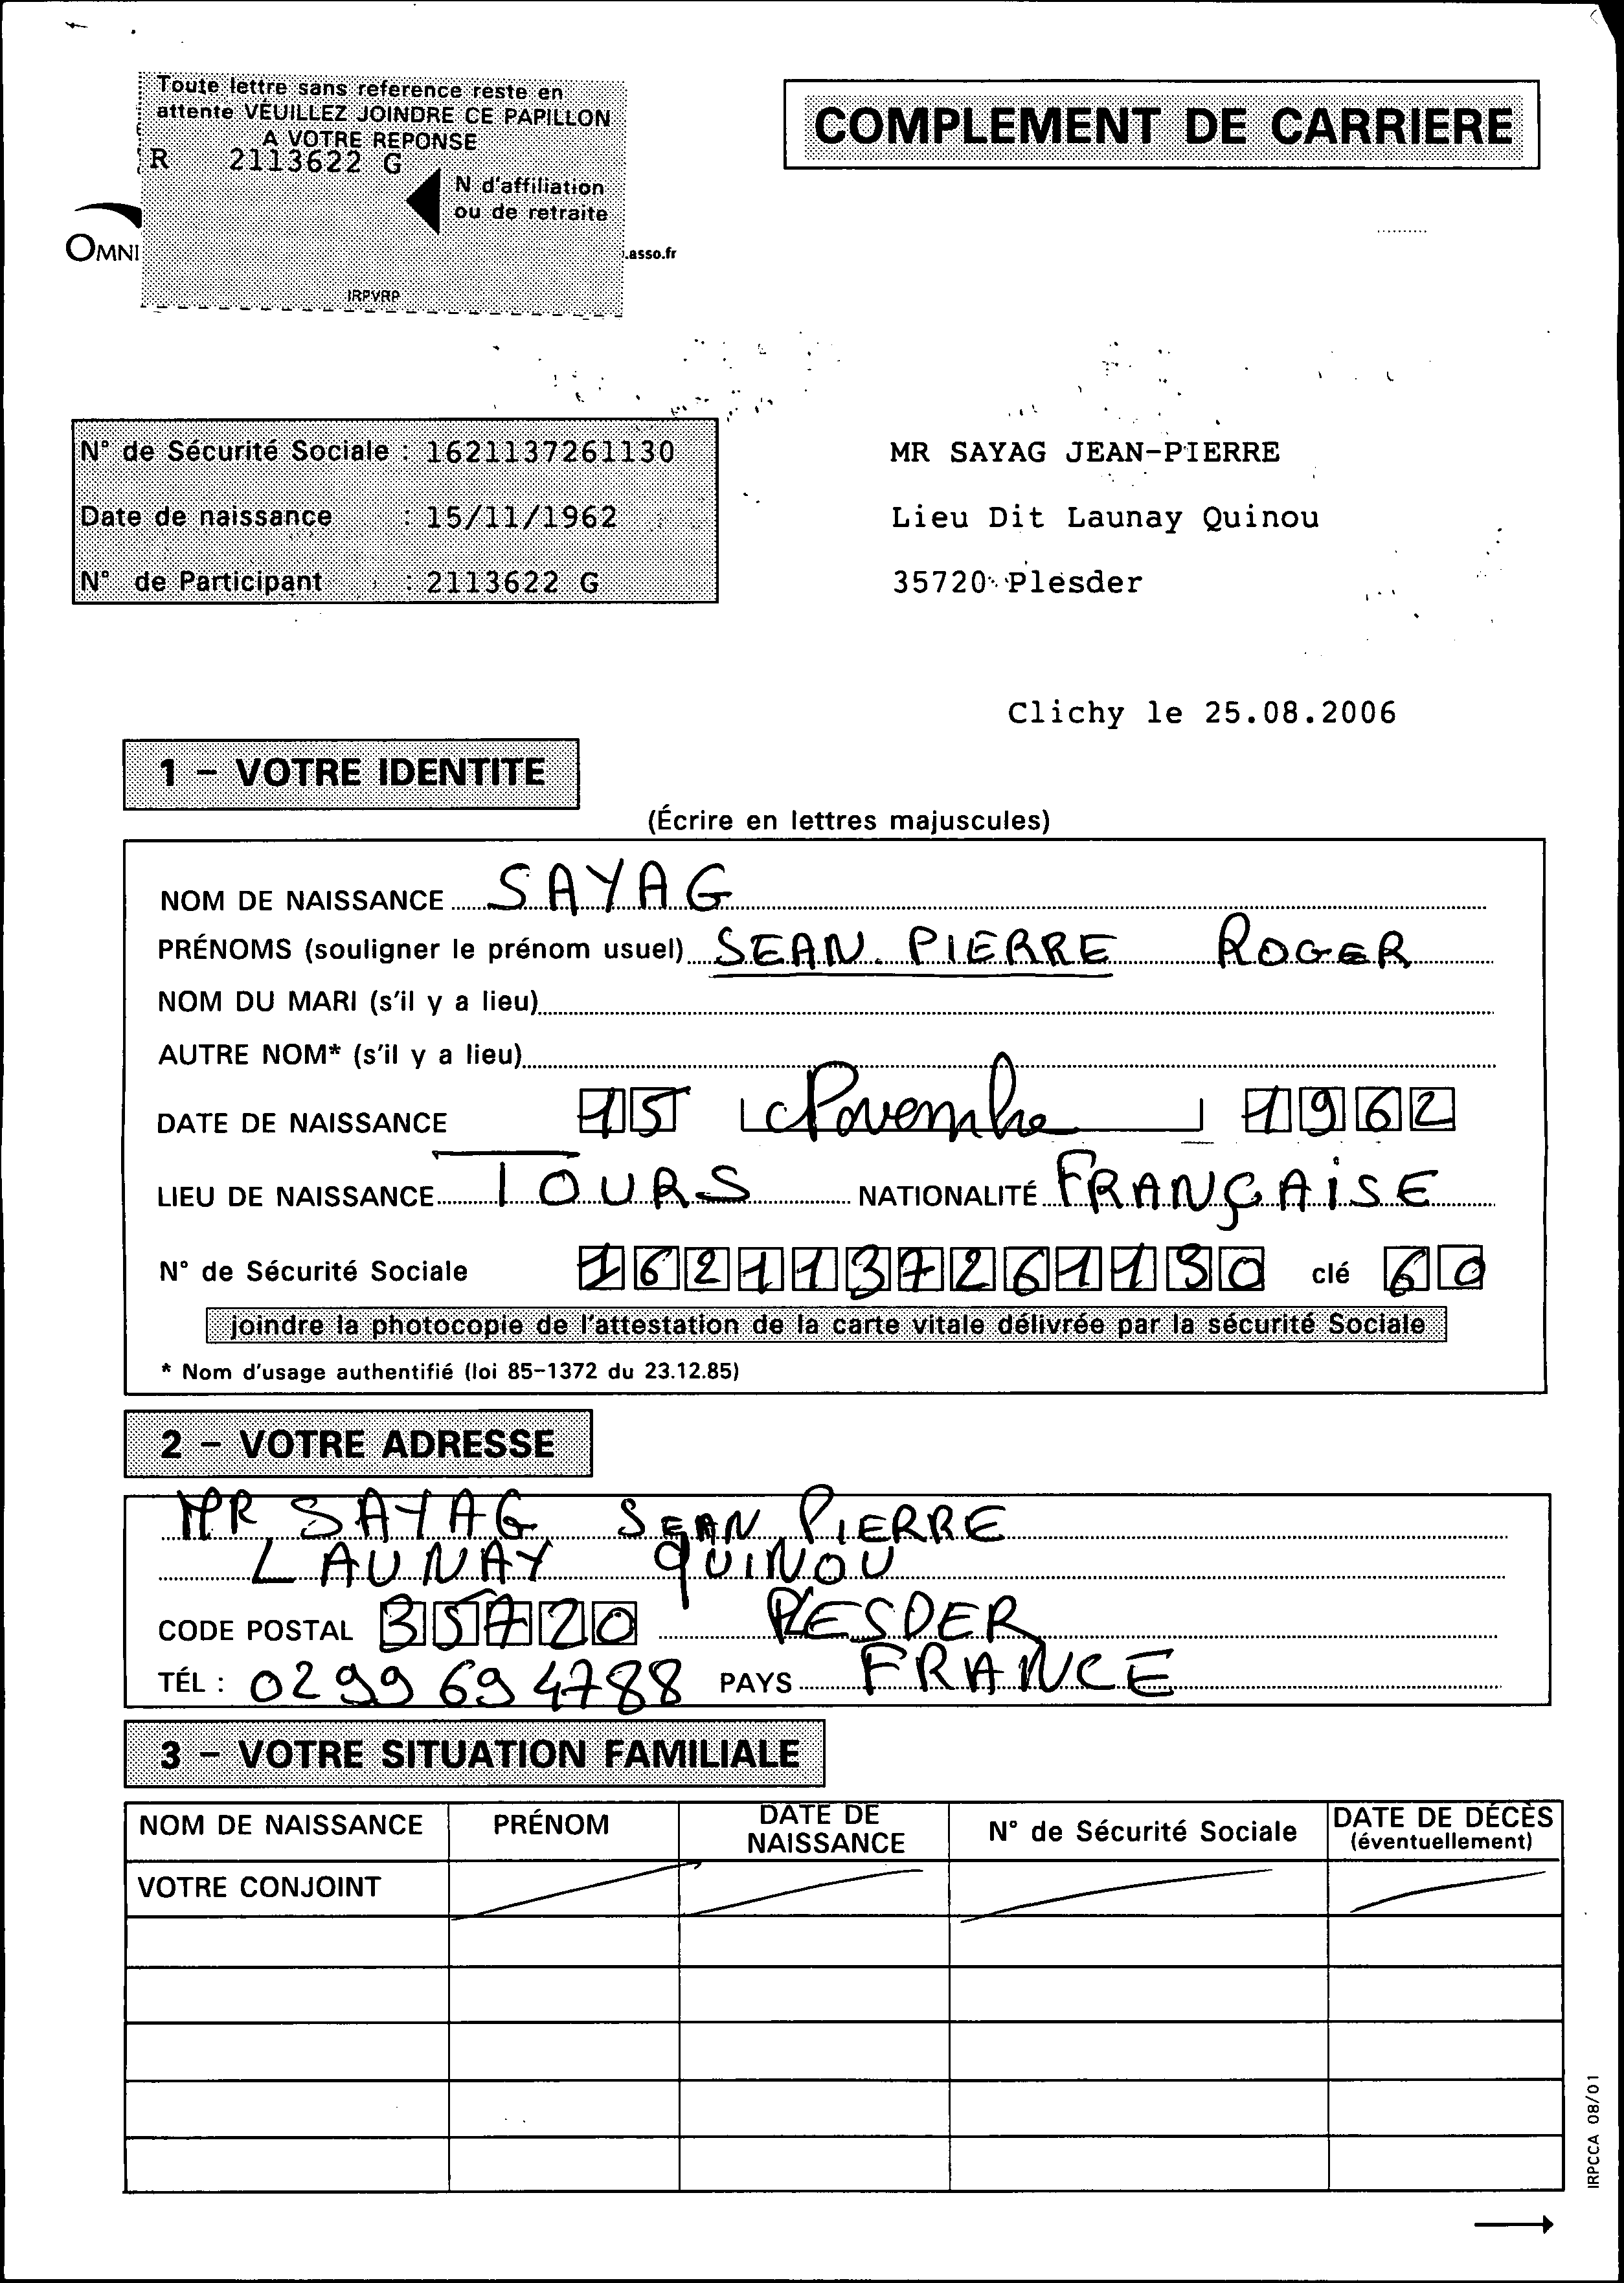 Toute lettre sans reference reste en
attente VEUILLEZ JOINDRE CE PAPILLON
A VOTRE REPONSE
R 2113622 G
N d'affiliation
ou de retraite
OMNI
.asso.fr
IRPVRP
COMPLEMENT DE CARRIERE
N° de Sécurité Sociale : 1621137261130
Date de naissance : 15/11/1962
N° de Participant : 2113622 G
MR SAYAG JEAN-PIERRE
Lieu Dit Launay Quinou
35720 Plesder
Clichy le 25.08.2006
1 - VOTRE IDENTITE
(Écrire en lettres majuscules)
NOM DE NAISSANCE SAYAG
PRÉNOMS (souligner le prénom usuel) JEAN. PIERRE ROGER
NOM DU MARI (s'il y a lieu)
AUTRE NOM* (s'il y a lieu)
DATE DE NAISSANCE 15 Novembre 1962
LIEU DE NAISSANCE TOURS NATIONALITÉ FRANÇAISE
N° de Sécurité Sociale 1621137261130 clé 60
joindre la photocopie de l'attestation de la carte vitale délivrée par la sécurité Sociale
* Nom d'usage authentifié (loi 85-1372 du 23.12.85)
2 - VOTRE ADRESSE
MR SAYAG JEAN PIERRE
LAUNAY QUINOU
CODE POSTAL 35720 PLESDER
TÉL : 0299694788 PAYS FRANCE
3 - VOTRE SITUATION FAMILIALE
NOM DE NAISSANCE PRÉNOM DATE DE NAISSANCE N° de Sécurité Sociale DATE DE DÉCÈS (éventuellement)
VOTRE CONJOINT
IRPCCA 08/01